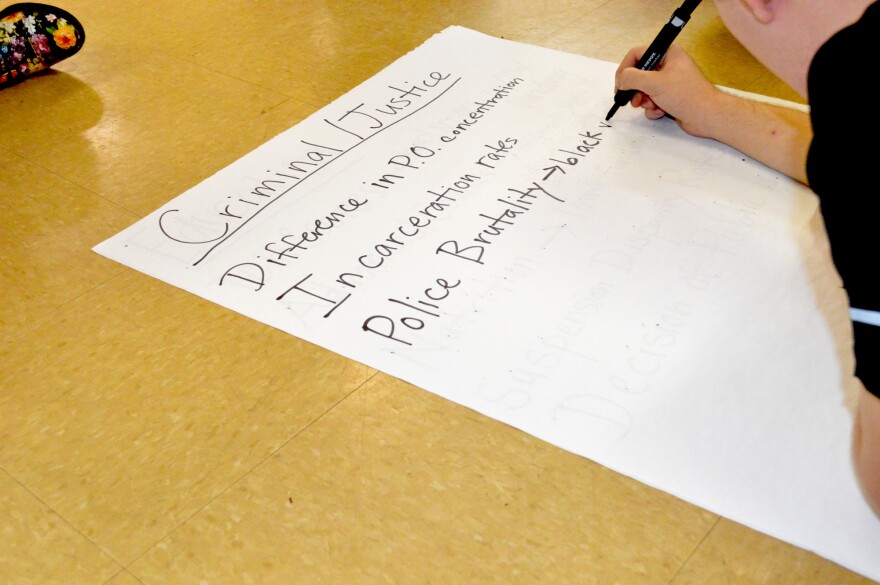 Criminal/Justice
Difference in P.O. concentration
Incarceration rates
Police Brutality → black
Suspension
Decision of